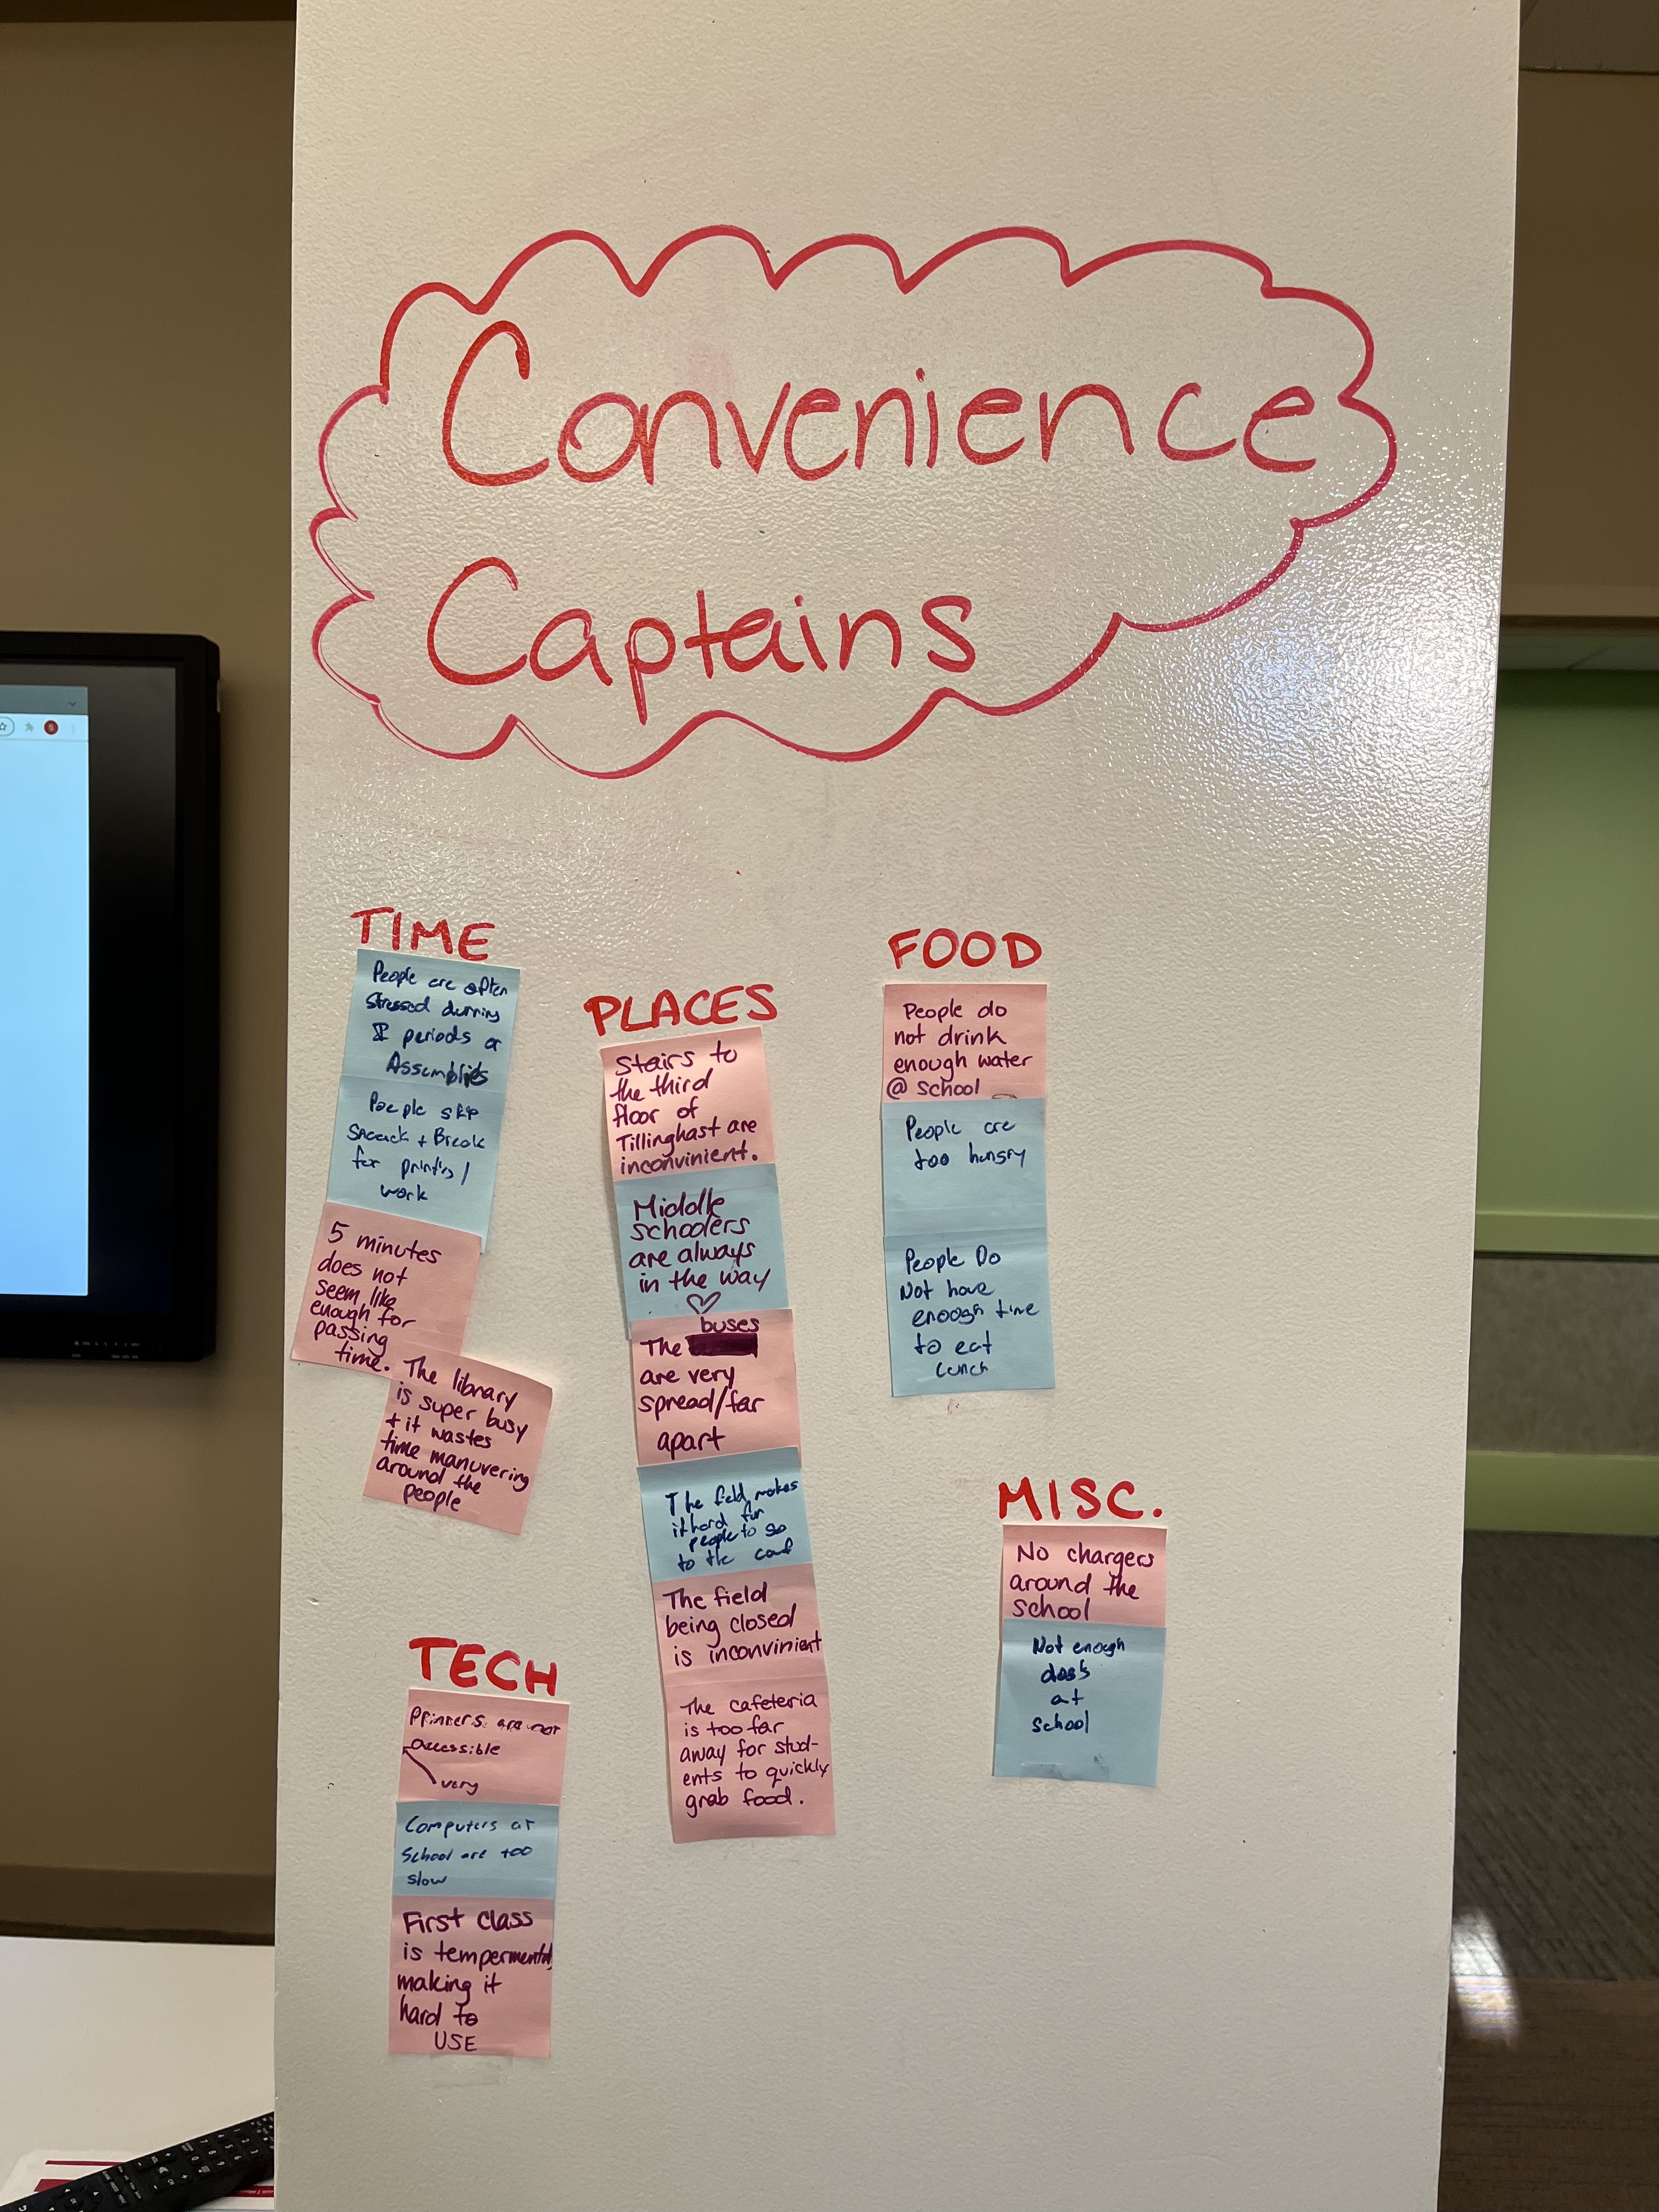 Convenience
Captains
TIME
People are often
stressed during
periods or
Assemblies
People skip
Snack + Break
for printing/
work
5 minutes
does not
seem like
enough for
passing
time.
The library
is super busy
+ it wastes
time manuvering
around the
people
PLACES
Stairs to
the third
floor of
Tillinghast are
inconvinient.
Middle
schoolers
are always
in the way
buses
The
are very
spread/far
apart
The field makes
it hard for
people to go
to the
The field
being closed
is inconvinient
The cafeteria
is too far
away for stud-
ents to quickly
grab food.
FOOD
People do
not drink
enough water
@ school
People are
too hungry
People Do
Not have
enough time
to eat
Lunch
MISC.
No chargers
around the
school
Not enough
at
school
TECH
Printers are not
accessible
very
Computers at
School are too
slow
First class
is tempermental,
making it
hard to
USE